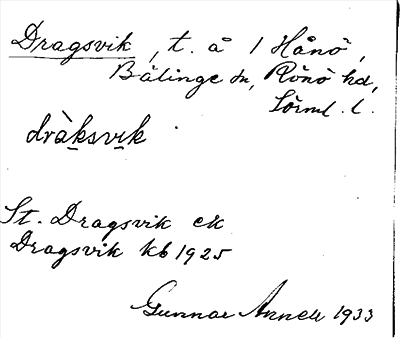 Dragsvik, t. å 1 Hånö,
Bälinge sn, Rönö hd,
Sörml. l.
dràksvik
St. Dragsvik ek
Dragsvik kb 1925
Gunnar Annell 1933